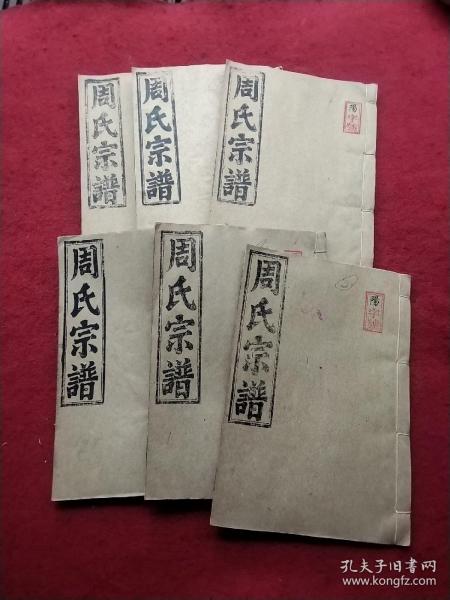 周氏宗譜
周氏宗譜
周氏宗譜
陽字號
周氏宗譜
周氏宗譜
周氏宗譜
陽字號
孔夫子旧书网
www.kongfz.com